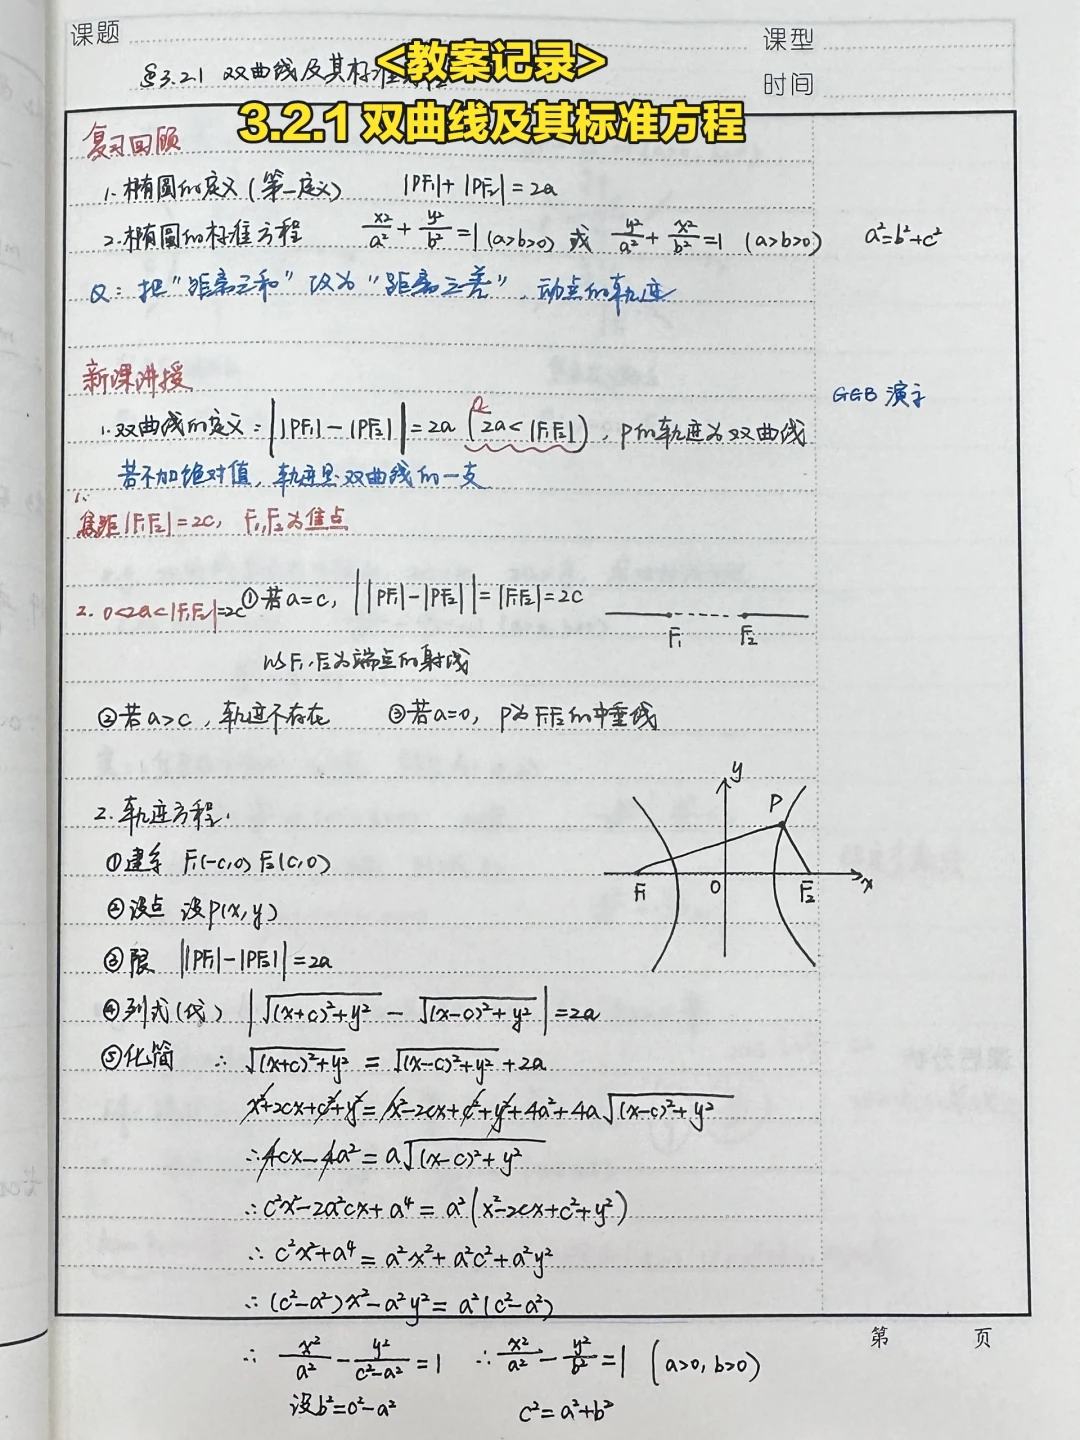 课题
课型
§3.2.1 双曲线及其标准
<教案记录>
时间
3.2.1 双曲线及其标准方程
复习回顾
1. 椭圆的定义(第一定义) |PF₁|+|PF₂|=2a
2. 椭圆的标准方程 x²/a² + y²/b² =1 (a>b>0) 或 y²/a² + x²/b² =1 (a>b>0) a²=b²+c²
Q: 把“距离之和”改为“距离之差”, 动点的轨迹
新课讲授
GGB 演示
1. 双曲线的定义: ||PF₁|-|PF₂||=2a (2a<|F₁F₂|), P的轨迹为双曲线
若不加绝对值, 轨迹是双曲线的一支
1.
焦距|F₁F₂|=2c, F₁,F₂为焦点
2. 0<2a<|F₁F₂|=2c ①若a=c, ||PF₁|-|PF₂||=|F₁F₂|=2c
F₁ F₂
以F₁,F₂为端点的射线
②若a>c, 轨迹不存在 ③若a=0, P为F₁F₂的中垂线
y
P
F₁ O F₂ x
2. 轨迹方程.
①建系 F₁(-c,0) F₂(c,0)
②设点 设P(x,y)
③限 ||PF₁|-|PF₂||=2a
④列式(代) |√((x+c)²+y²) - √((x-c)²+y²)|=2a
⑤化简 ∴ √((x+c)²+y²) = √((x-c)²+y²) +2a
x²+2cx+c²+y²=x²-2cx+c²+y²+4a²+4a√((x-c)²+y²)
∴4cx-4a²=a√((x-c)²+y²)
∴c²x²-2a²cx+a⁴=a²(x²-2cx+c²+y²)
∴c²x²+a⁴=a²x²+a²c²+a²y²
∴(c²-a²)x²-a²y²=a²(c²-a²)
第 页
∴ x²/a² - y²/(c²-a²) =1 ∴ x²/a² - y²/b² =1 (a>0,b>0)
设b²=c²-a² c²=a²+b²